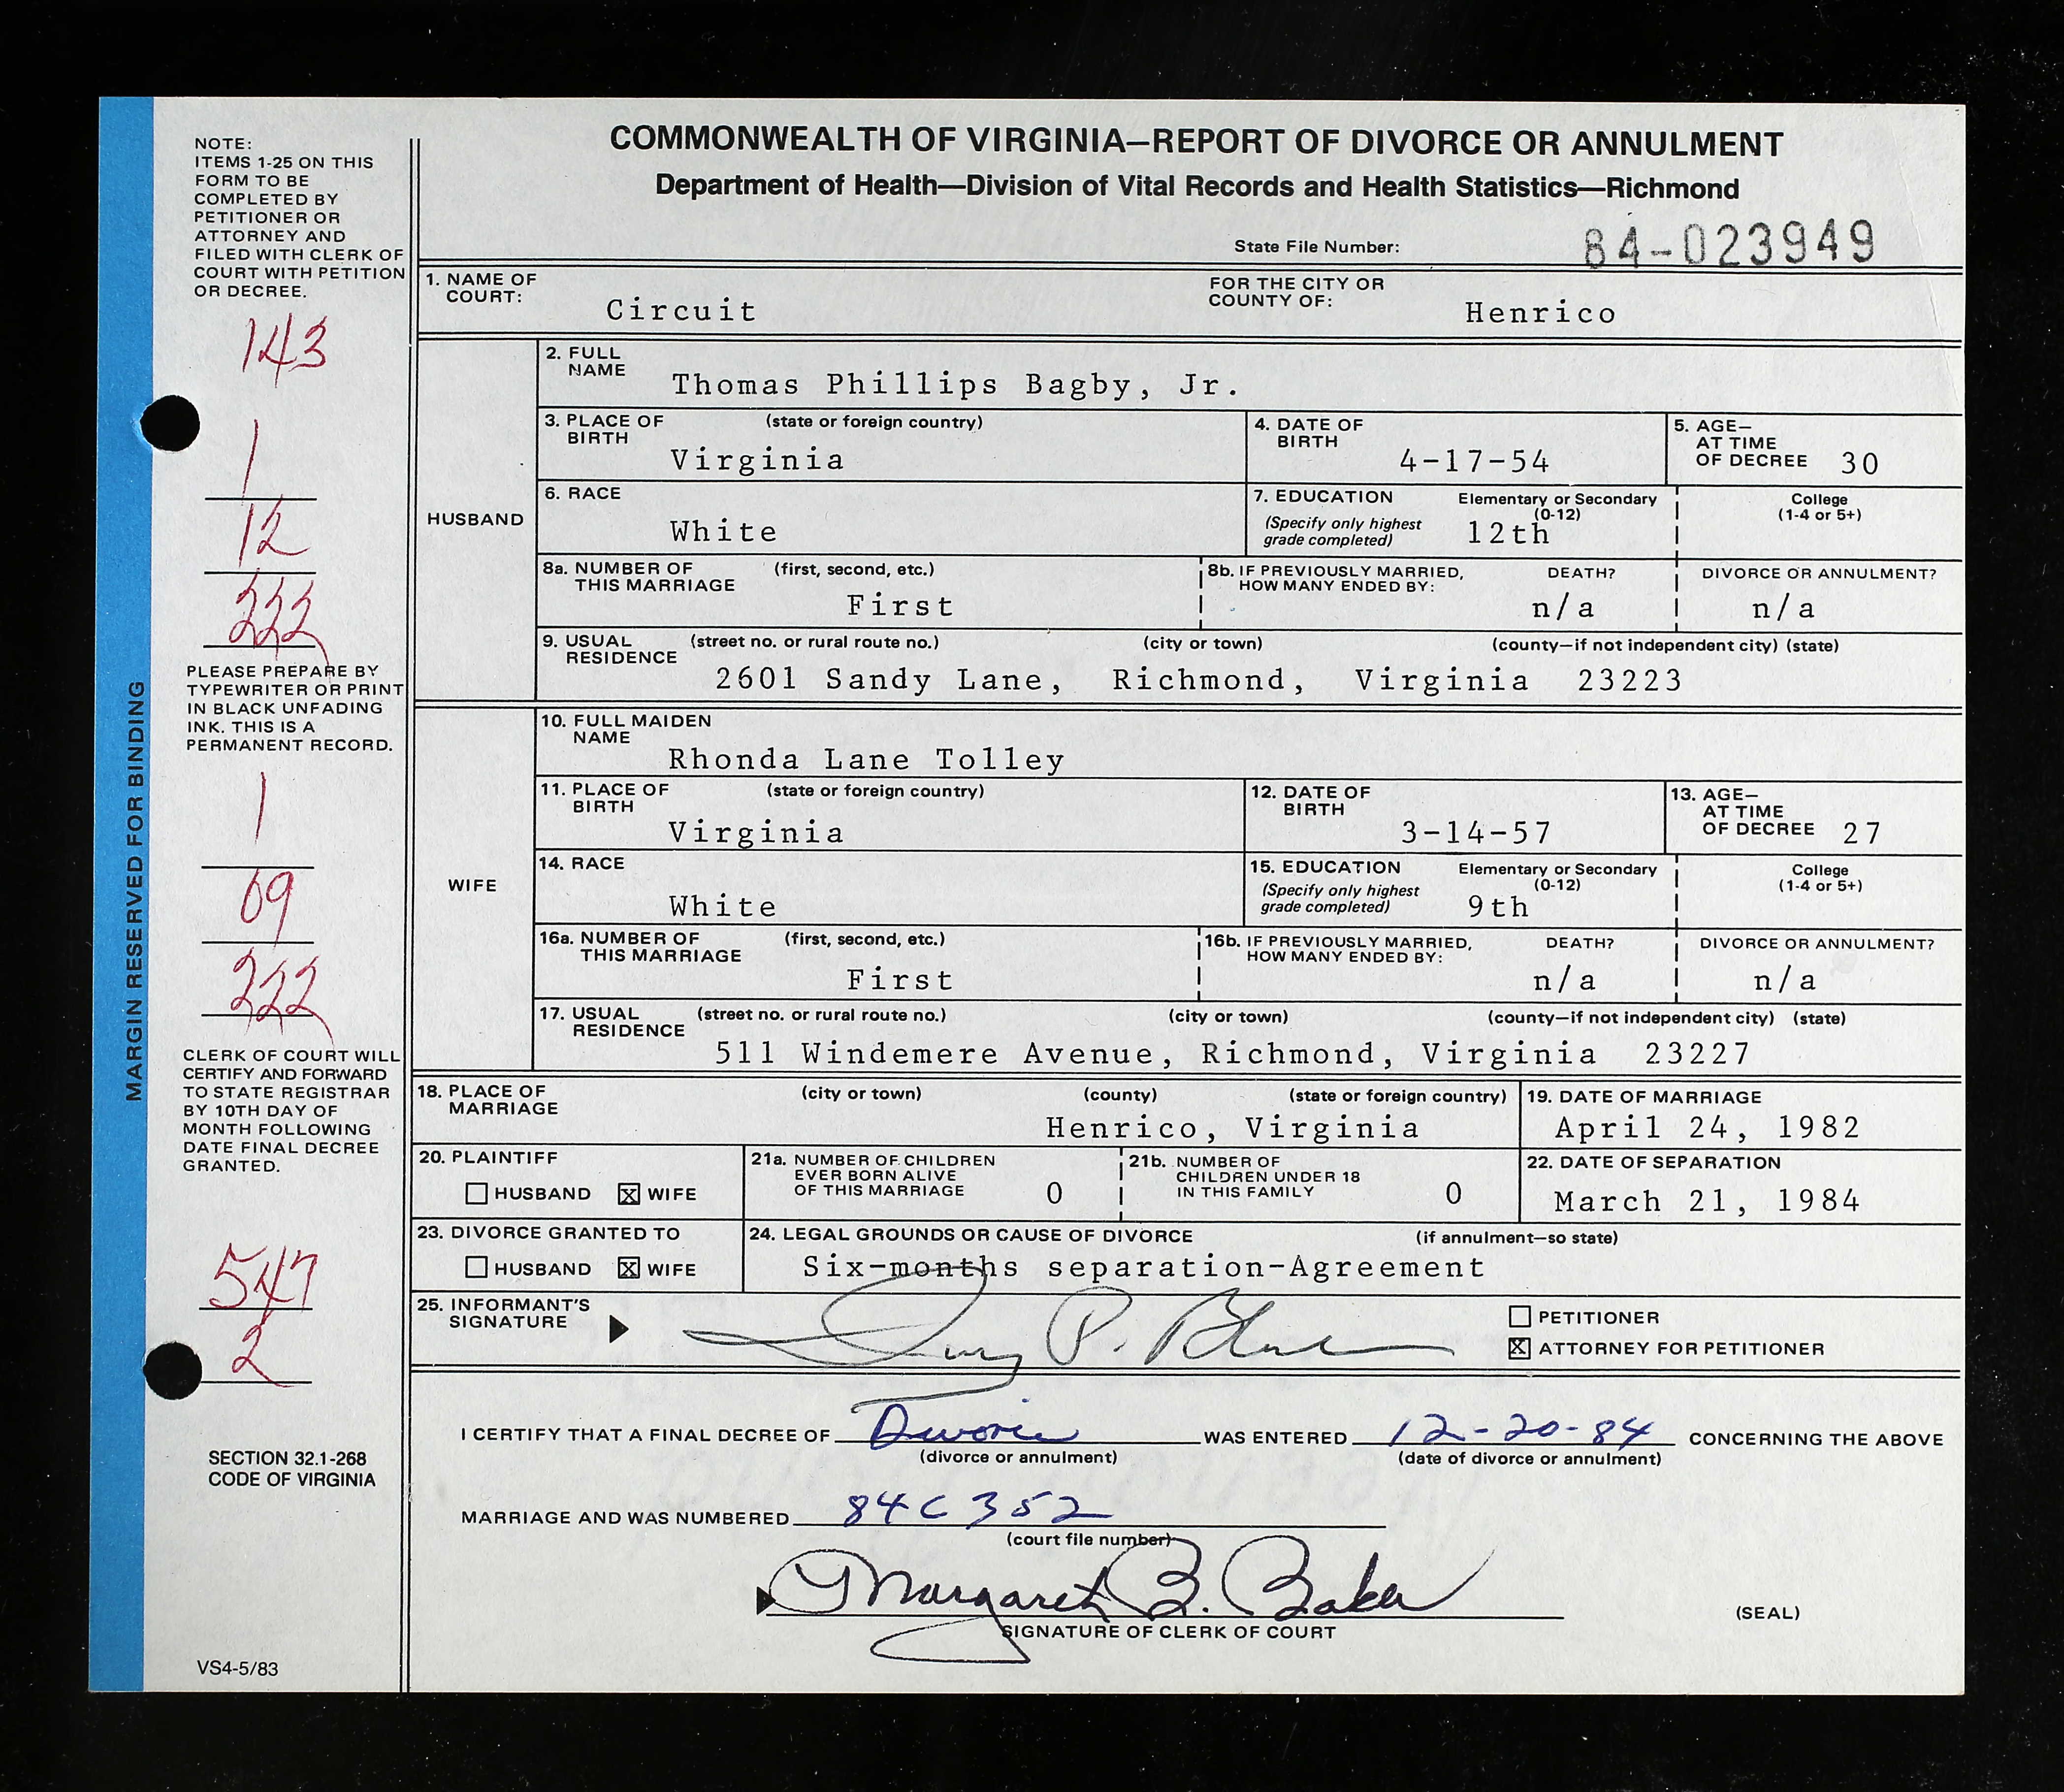 COMMONWEALTH OF VIRGINIA—REPORT OF DIVORCE OR ANNULMENT
Department of Health—Division of Vital Records and Health Statistics—Richmond
State File Number: 84-023949
NOTE:
ITEMS 1-25 ON THIS
FORM TO BE
COMPLETED BY
PETITIONER OR
ATTORNEY AND
FILED WITH CLERK OF
COURT WITH PETITION
OR DECREE.
143
1
12
222
PLEASE PREPARE BY
TYPEWRITER OR PRINT
IN BLACK UNFADING
INK. THIS IS A
PERMANENT RECORD.
1
09
222
CLERK OF COURT WILL
CERTIFY AND FORWARD
TO STATE REGISTRAR
BY 10TH DAY OF
MONTH FOLLOWING
DATE FINAL DECREE
GRANTED.
547
2
SECTION 32.1-268
CODE OF VIRGINIA
VS4-5/83
MARGIN RESERVED FOR BINDING
1. NAME OF COURT: Circuit FOR THE CITY OR COUNTY OF: Henrico
HUSBAND
2. FULL NAME Thomas Phillips Bagby, Jr.
3. PLACE OF BIRTH (state or foreign country) Virginia
4. DATE OF BIRTH 4-17-54
5. AGE— AT TIME OF DECREE 30
6. RACE White
7. EDUCATION (Specify only highest grade completed) Elementary or Secondary (0-12) 12th College (1-4 or 5+)
8a. NUMBER OF THIS MARRIAGE (first, second, etc.) First
8b. IF PREVIOUSLY MARRIED, HOW MANY ENDED BY: DEATH? n/a DIVORCE OR ANNULMENT? n/a
9. USUAL RESIDENCE (street no. or rural route no.) (city or town) (county—if not independent city) (state)
2601 Sandy Lane, Richmond, Virginia 23223
WIFE
10. FULL MAIDEN NAME Rhonda Lane Tolley
11. PLACE OF BIRTH (state or foreign country) Virginia
12. DATE OF BIRTH 3-14-57
13. AGE— AT TIME OF DECREE 27
14. RACE White
15. EDUCATION (Specify only highest grade completed) Elementary or Secondary (0-12) 9th College (1-4 or 5+)
16a. NUMBER OF THIS MARRIAGE (first, second, etc.) First
16b. IF PREVIOUSLY MARRIED, HOW MANY ENDED BY: DEATH? n/a DIVORCE OR ANNULMENT? n/a
17. USUAL RESIDENCE (street no. or rural route no.) (city or town) (county—if not independent city) (state)
511 Windemere Avenue, Richmond, Virginia 23227
18. PLACE OF MARRIAGE (city or town) (county) (state or foreign country) Henrico, Virginia
19. DATE OF MARRIAGE April 24, 1982
20. PLAINTIFF HUSBAND X WIFE
21a. NUMBER OF CHILDREN EVER BORN ALIVE OF THIS MARRIAGE 0
21b. NUMBER OF CHILDREN UNDER 18 IN THIS FAMILY 0
22. DATE OF SEPARATION March 21, 1984
23. DIVORCE GRANTED TO HUSBAND X WIFE
24. LEGAL GROUNDS OR CAUSE OF DIVORCE (if annulment—so state)
Six-months separation-Agreement
25. INFORMANT'S SIGNATURE P. PETITIONER
X ATTORNEY FOR PETITIONER
I CERTIFY THAT A FINAL DECREE OF Divorce WAS ENTERED 12-20-84 CONCERNING THE ABOVE
(divorce or annulment) (date of divorce or annulment)
MARRIAGE AND WAS NUMBERED 84C352
(court file number)
Margaret B. Baker
SIGNATURE OF CLERK OF COURT
(SEAL)